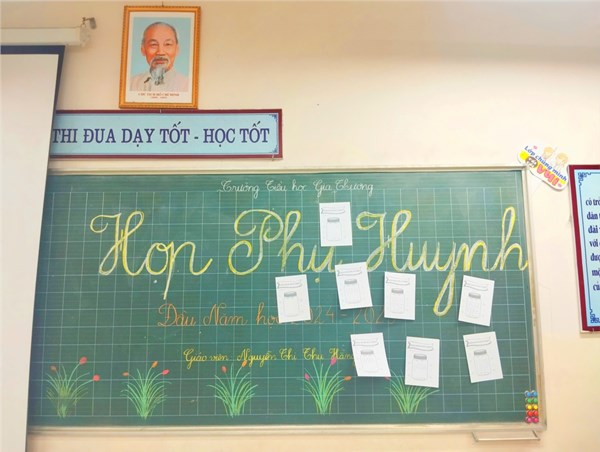 THI ĐUA DẠY TỐT - HỌC TỐT
Lớp thông minh
Trường Tiểu học Gia Thượng
Họp Phụ Huynh
Đầu Năm học 2024 - 202
Giáo viên Nguyễn Thị Thu Hằn